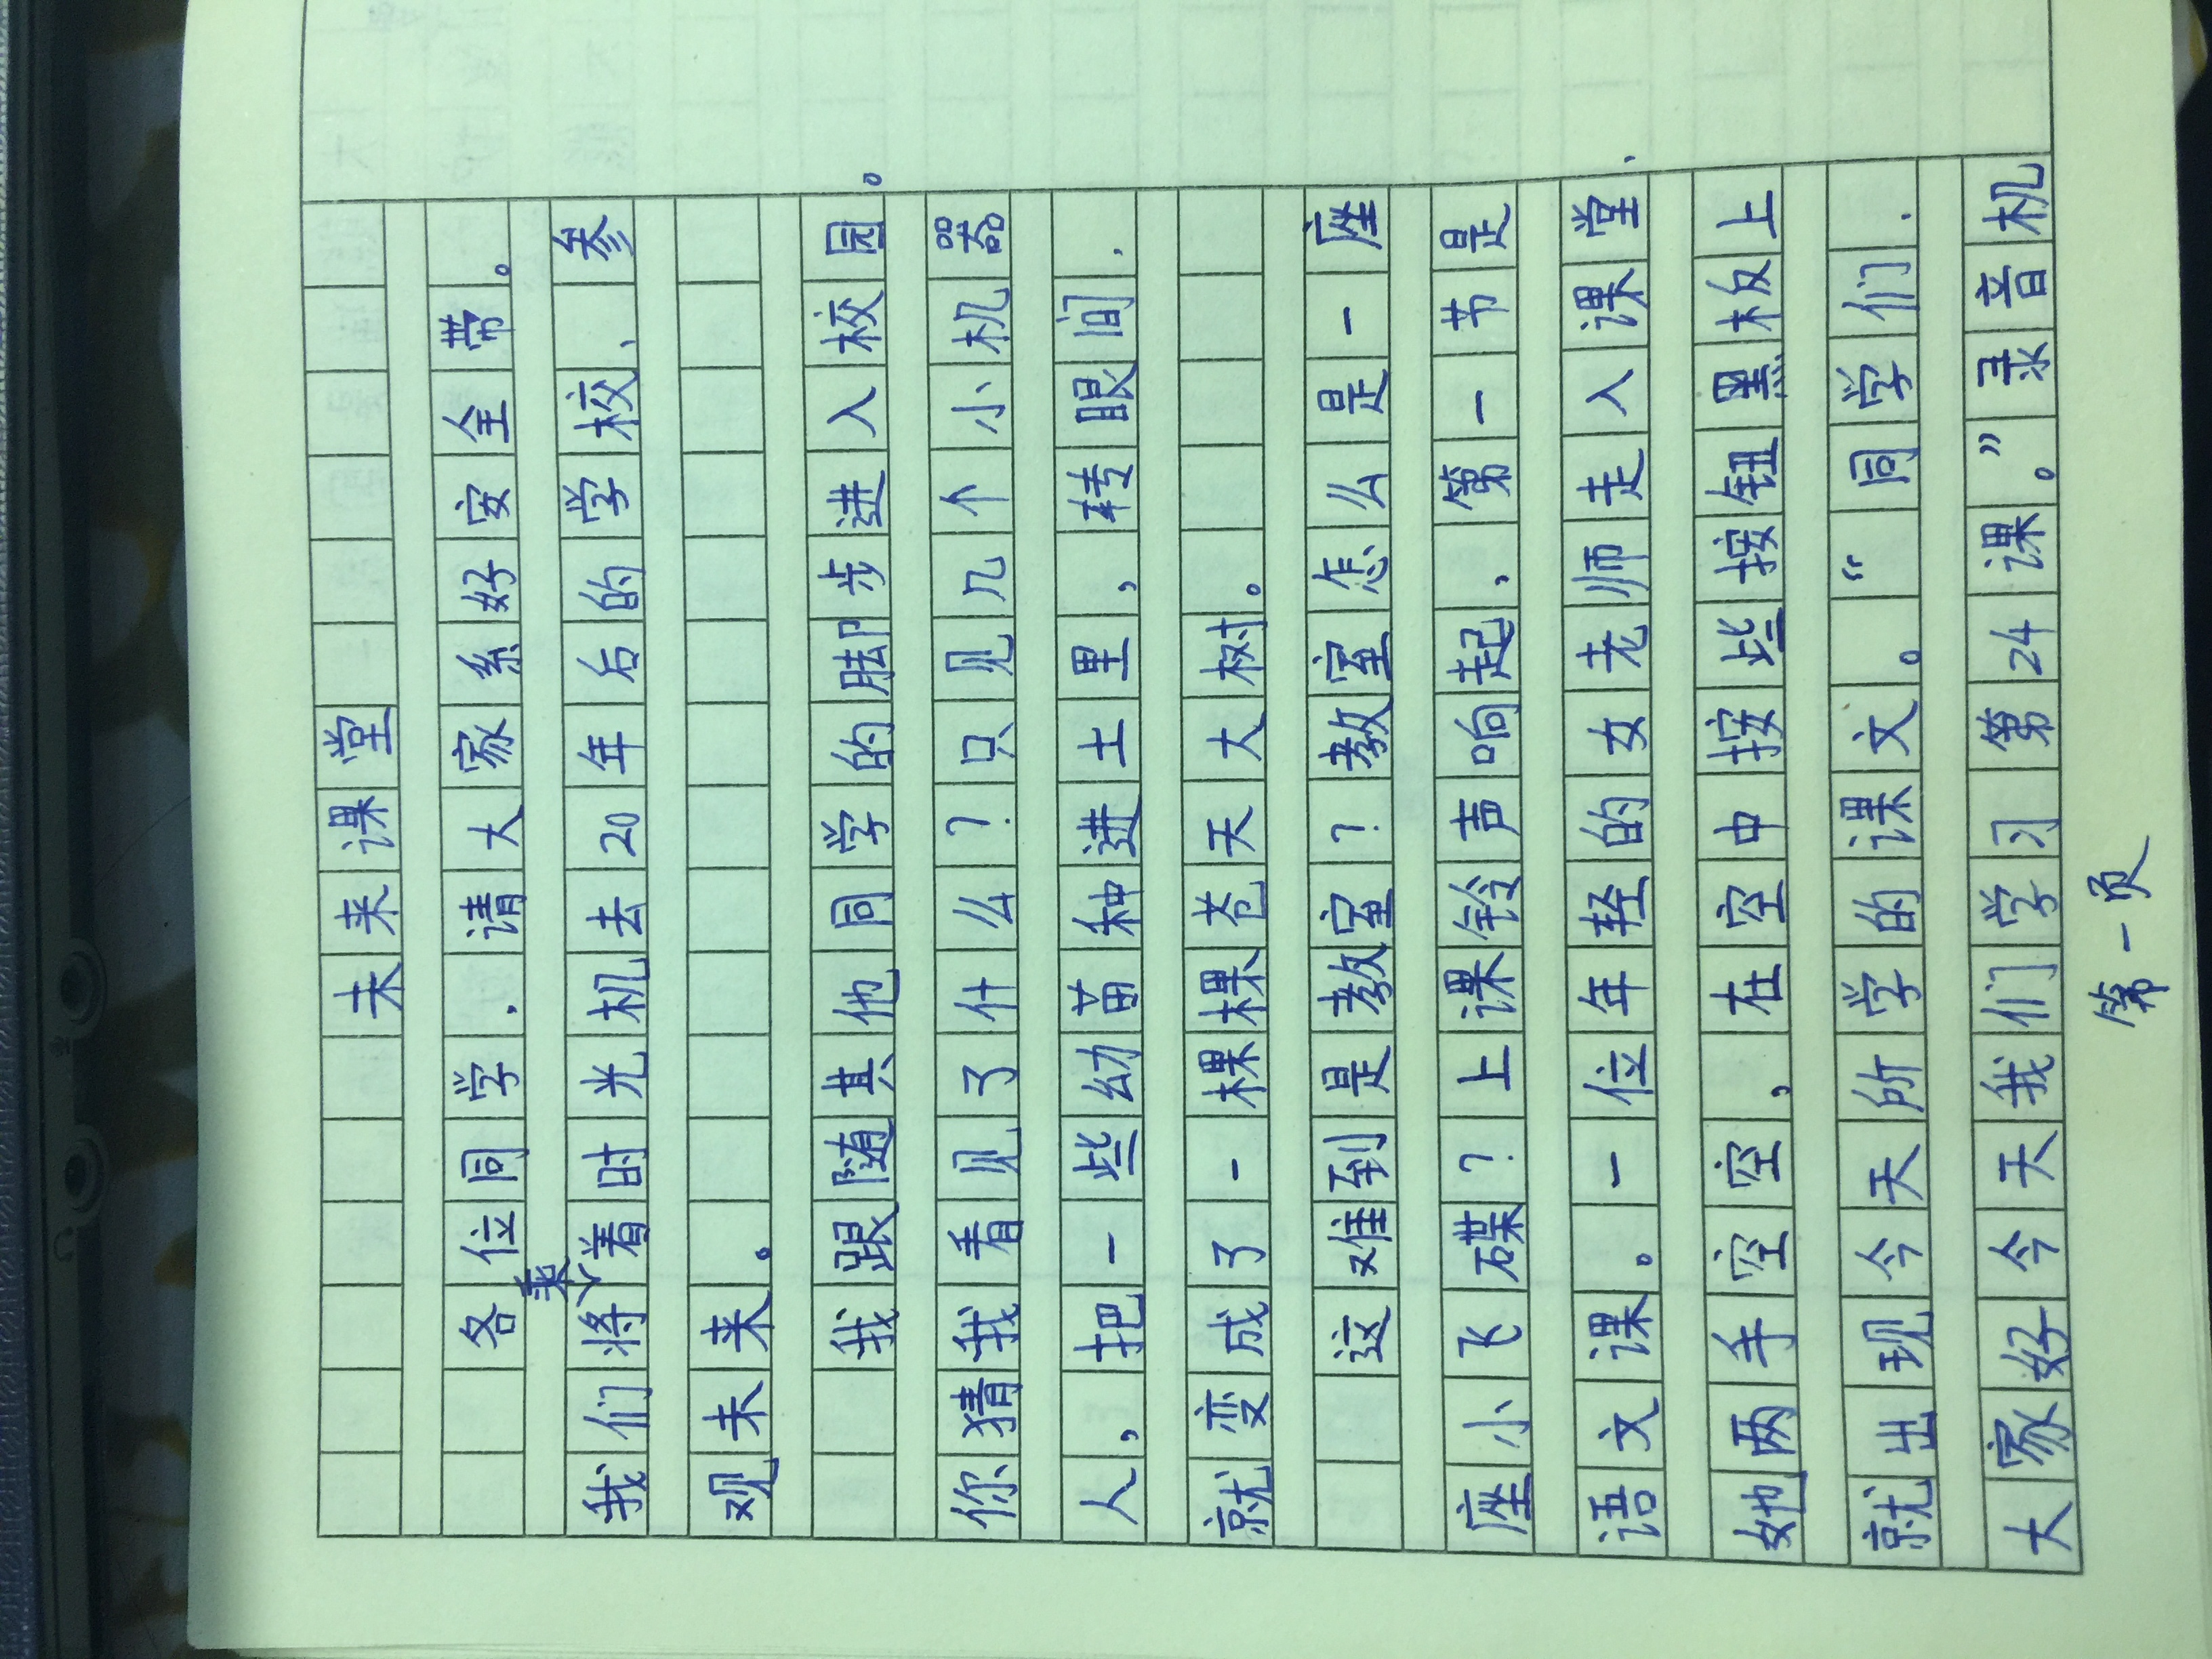 未来课堂
各位同学，请大家系好安全带。
我们将乘着时光机去20年后的学校、参
观未来。
我跟随其他同学的脚步进入校园。
你猜我看见了什么？只见几个小机器
人，把一些幼苗种进土里，转眼间，
就变成了一棵棵苍天大树。
这难到是教室？教室怎么是一座
座小飞碟？上课铃声响起，第一节是
语文课。一位年轻的女老师走入课堂，
她两手空空，在空中按些按钮黑板上
就出现今天所学的课文。“同学们，
大家好今天我们学习第24课。”录音机
第一页